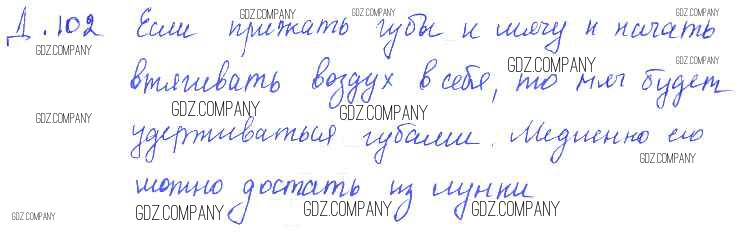 Д.102 Если прижать губы к мячу и начать
втягивать воздух в себя, то мяч будет
удерживаться губами. Медленно его
можно достать из лунки
GDZ.COMPANY GDZ.COMPANY GDZ.COMPANY
GDZ.COMPANY GDZ.COMPANY GDZ.COMPANY
GDZ.COMPANY GDZ.COMPANY GDZ.COMPANY
GDZ.COMPANY
GDZ.COMPANY GDZ.COMPANY GDZ.COMPANY GDZ.COMPANY